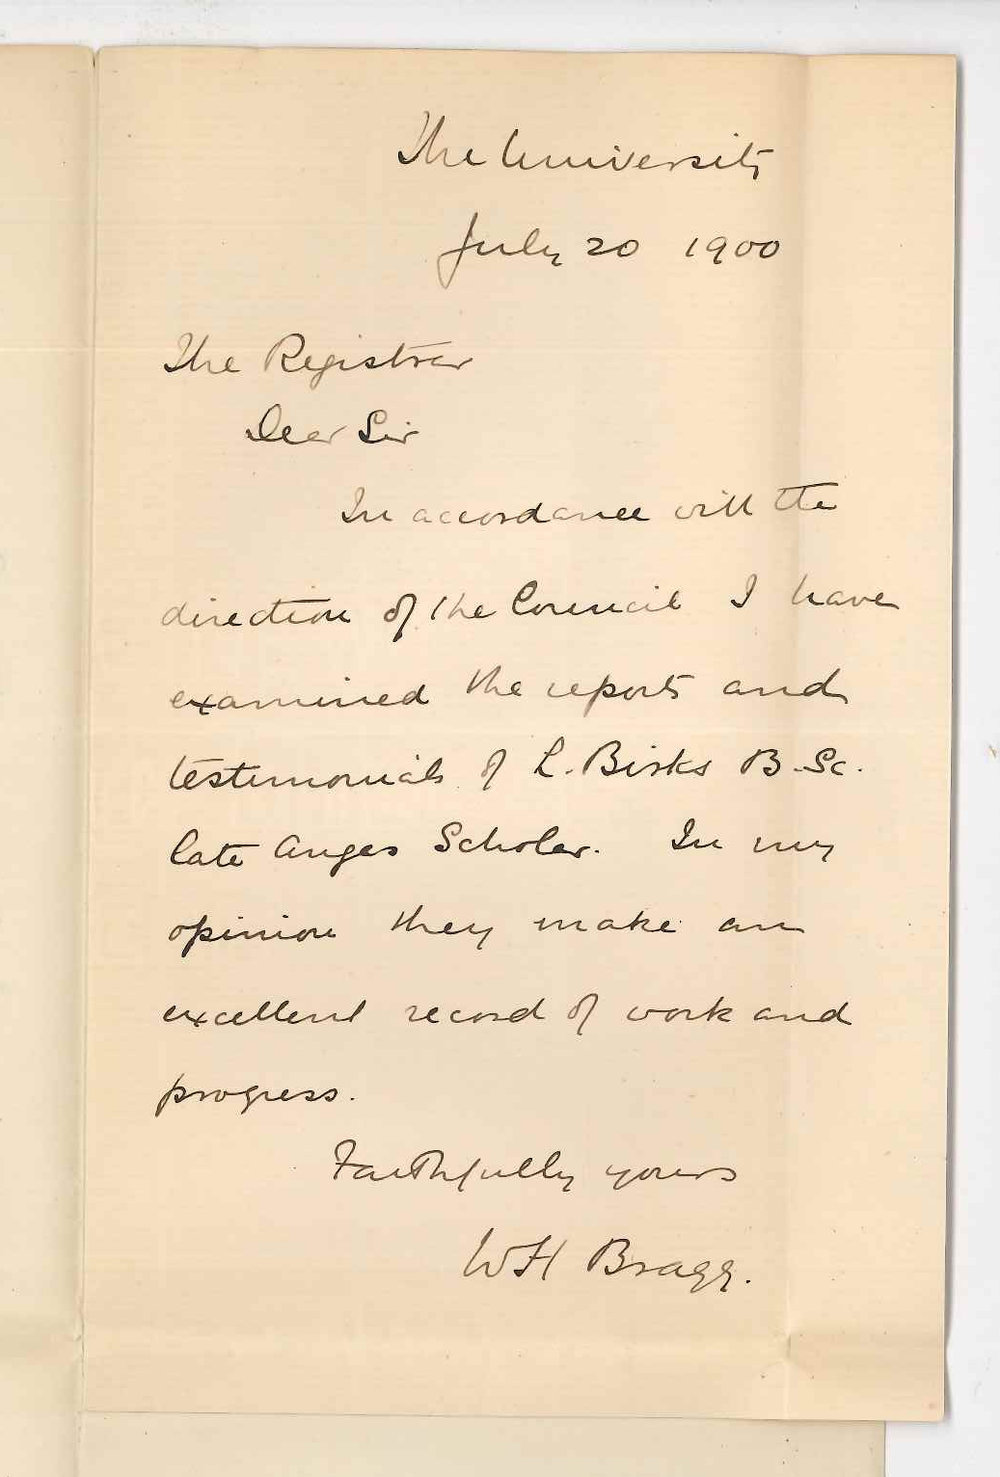 The University
July 20 1900
The Registrar
Dear Sir
In accordance with the
direction of the Council I have
examined the reports and
testimonials of L. Birks B.Sc.
late Angas Scholar. In my
opinion they make an
excellent record of work and
progress.
Faithfully yours
WH Bragg.